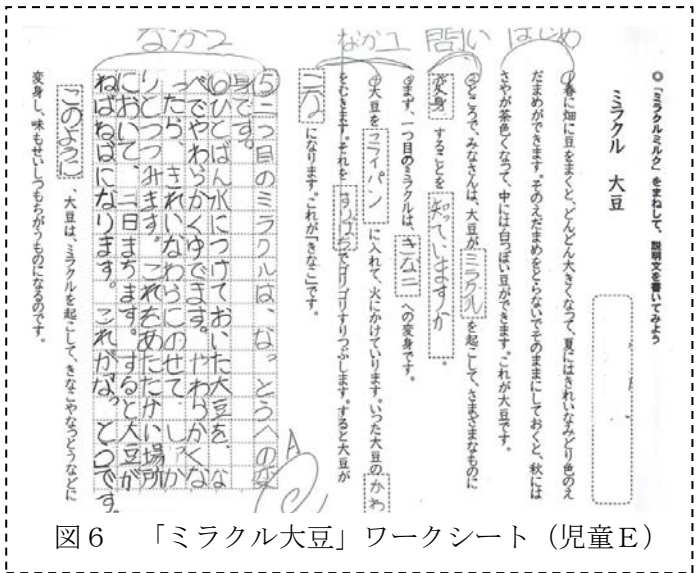 はじめ
問い
なか1
なか2
○「ミラクルミルク」をまねして、説明文を書いてみよう
ミラクル 大豆
①春に畑に豆をまくと、どんどん大きくなって、夏にはきれいなみどり色のえ
だまめができます。そのえだまめをとらないでそのままにしておくと、秋には
さやが茶色くなって、中には白っぽい豆ができます。これが大豆です。
②ところで、みなさんは、大豆がミラクルを起こして、さまざまなものに
変身することを知っていますか。
③まず、一つ目のミラクルは、きなこへの変身です。
④大豆をフライパンに入れて、火にかけていります。いった大豆のかわ
をむきます。それをすりばちでゴリゴリすりつぶします。すると大豆が
こなになります。これが「きなこ」です。
⑤二つ目のミラクルは、なっとうへの変
身です。
⑥ひとばん水につけておいた大豆を、な
べでやわらかくゆでます。やわらかくな
ったら、きれいなわらにのせて、しっか
りとつつみます。これをあたたかい場所
において、二日まちます。すると大豆が
ねばねばになります。これがなっとうです。
このように、大豆は、ミラクルを起こして、きなこやなっとうなどに
変身し、味もせいしつもちがうものになるのです。
A
図6 「ミラクル大豆」ワークシート（児童E）